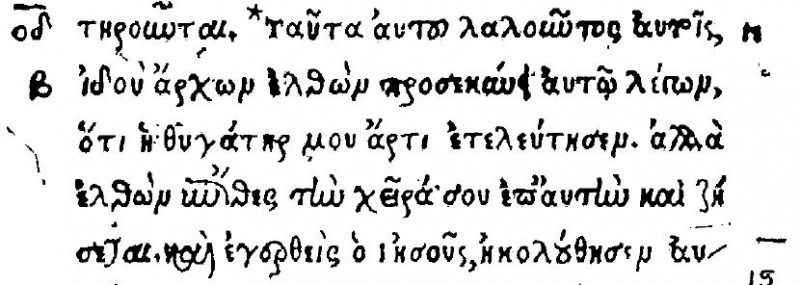 οδ τηροῦνται. *ταῦτα αὐτοῦ λαλοῦντος αὐτοῖς,
β ἰδοὺ ἄρχων ἐλθὼν προσεκύνει αὐτῶ λέγων,
ὅτι ἡ θυγάτηρ μου ἄρτι ἐτελεύτησεν. ἀλλὰ
ἐλθὼν ἐπίθες τὴν χεῖρά σου ἐπ' αὐτὴν καὶ ζή
σεται. καὶ ἐγερθεὶς ὁ ιησοῦς, ἠκολούθησεν αυ